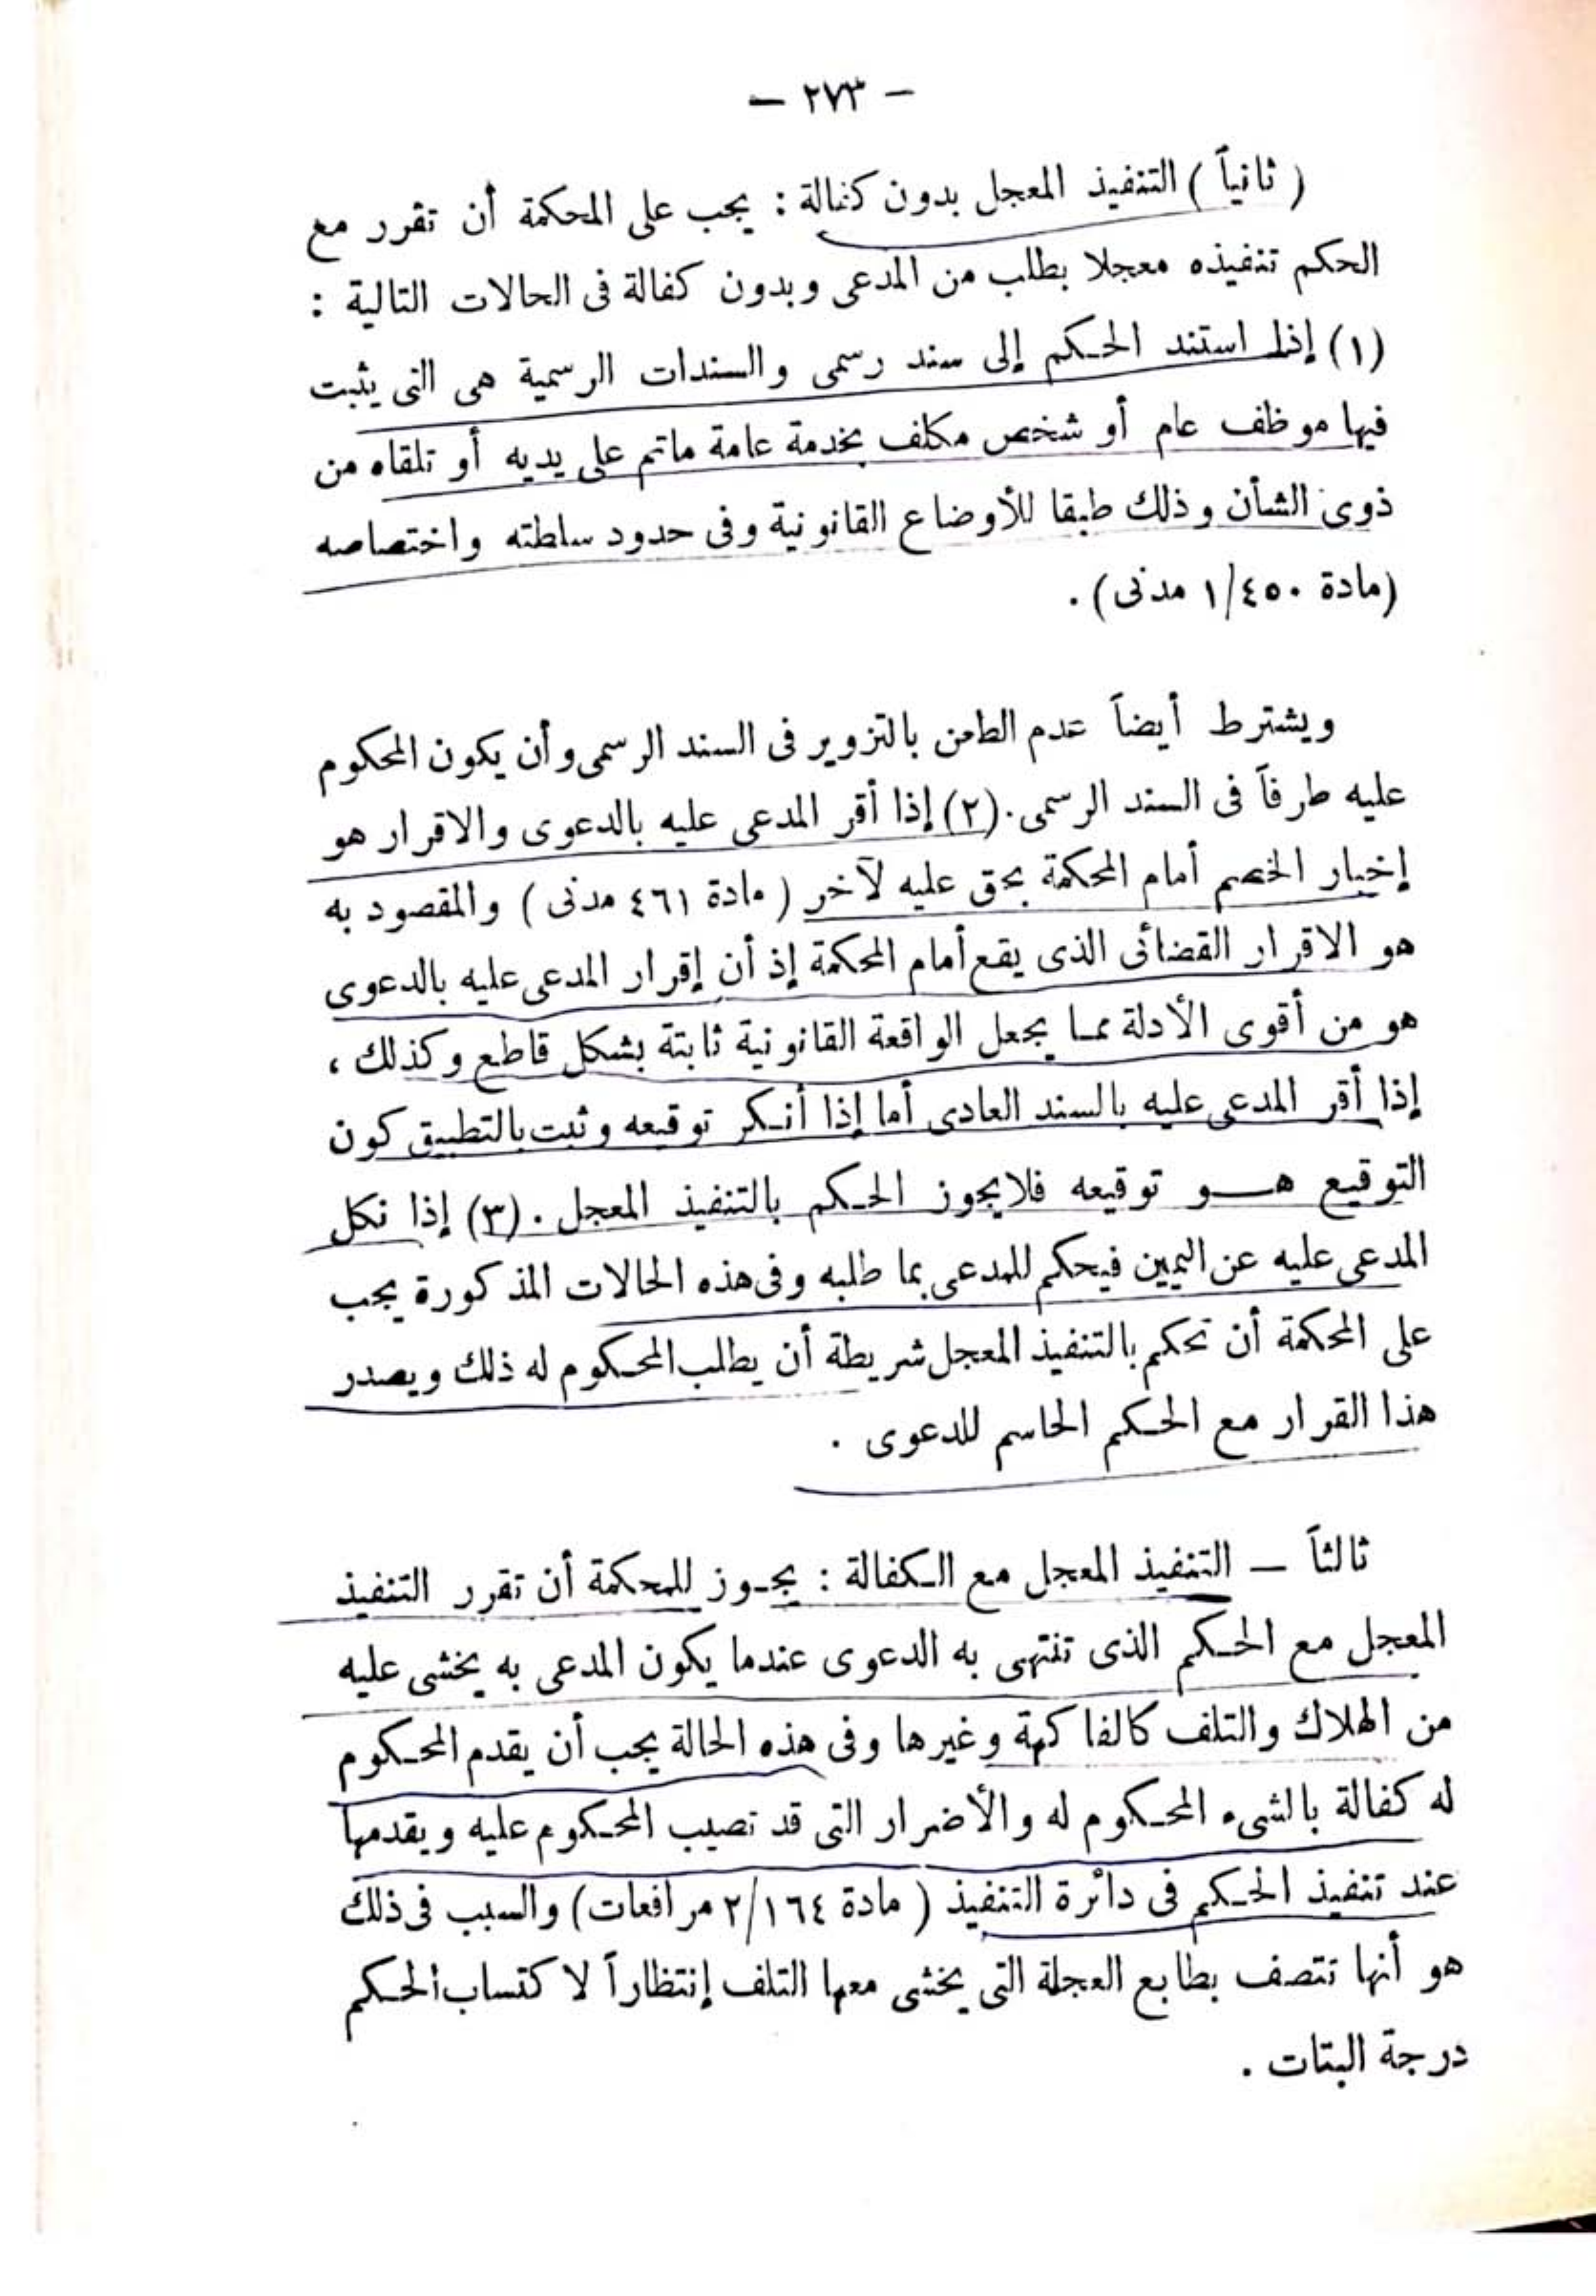 — ٢٧٣ —
( ثانياً ) التنفيذ المعجل بدون كفالة : يجب على المحكمة أن تقرر مع
الحكم تنفيذه معجلا بطلب من المدعى وبدون كفالة فى الحالات التالية :
(١) إذا استند الحكم إلى سند رسمى والسندات الرسمية هى التى يثبت
فيها موظف عام أو شخص مكلف بخدمة عامة ماتم على يديه أو تلقاه من
ذوى الشأن وذلك طبقا للأوضاع القانونية وفى حدود سلطته واختصاصه
(مادة ١/٤٥٠ مدنى) .
ويشترط أيضاً عدم الطعن بالتزوير فى السند الرسمى وأن يكون المحكوم
عليه طرفاً فى السند الرسمى . (٢) إذا أقر المدعى عليه بالدعوى والاقرار هو
إخبار الخصم أمام المحكمة بحق عليه لآخر ( مادة ٤٦١ مدنى ) والمقصود به
هو الاقرار القضائى الذى يقع أمام المحكمة إذ أن إقرار المدعى عليه بالدعوى
هو من أقوى الأدلة مما يجعل الواقعة القانونية ثابتة بشكل قاطع وكذلك ،
إذا أقر المدعى عليه بالسند العادى أما إذا أنكر توقيعه وثبت بالتطبيق كون
التوقيع هو توقيعه فلايجوز الحكم بالتنفيذ المعجل . (٣) إذا نكل
المدعى عليه عن اليمين فيحكم للمدعى بما طلبه وفى هذه الحالات المذكورة يجب
على المحكمة أن تحكم بالتنفيذ المعجل شريطة أن يطلب المحكوم له ذلك ويصدر
هذا القرار مع الحكم الحاسم للدعوى .
ثالثاً — التنفيذ المعجل مع الكفالة : يجوز للمحكمة أن تقرر التنفيذ
المعجل مع الحكم الذى تنتهى به الدعوى عندما يكون المدعى به يخشى عليه
من الهلاك والتلف كالفاكهة وغيرها وفى هذه الحالة يجب أن يقدم المحكوم
له كفالة بالشىء المحكوم له والأضرار التى قد تصيب المحكوم عليه ويقدمها
عند تنفيذ الحكم فى دائرة التنفيذ ( مادة ٢/١٦٤ مرافعات) والسبب فى ذلك
هو أنها تتصف بطابع العجلة التى يخشى معها التلف إنتظاراً لاكتساب الحكم
درجة البتات .